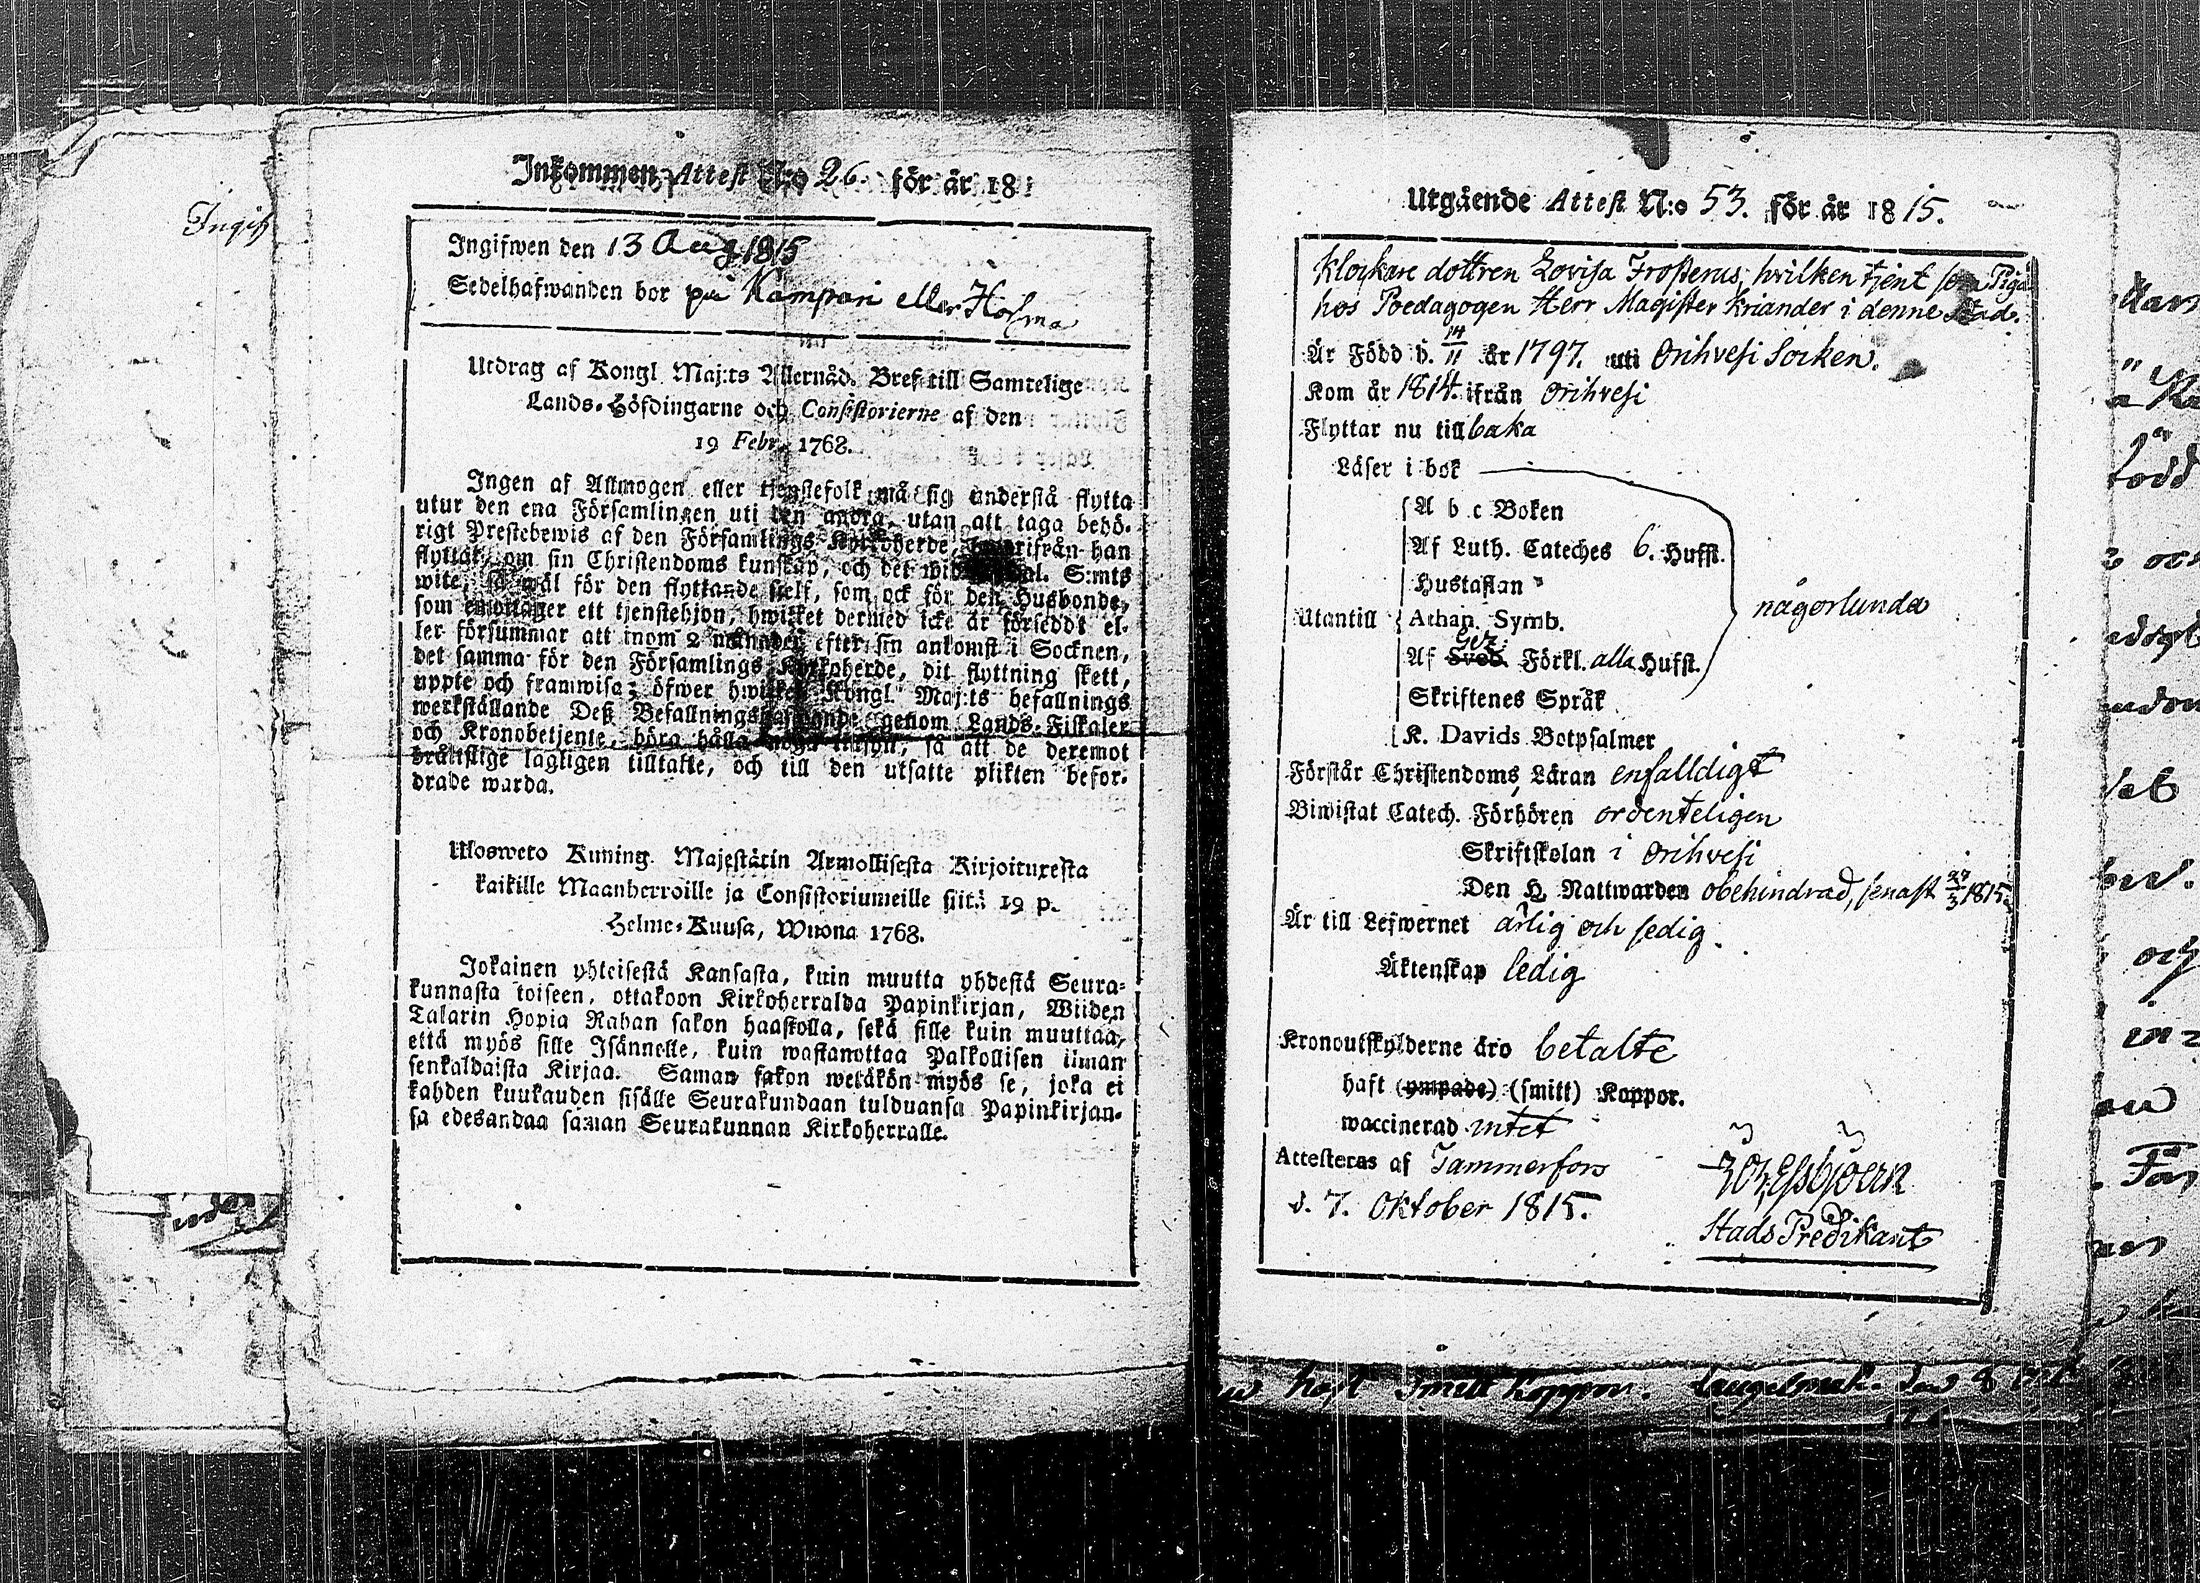 Ingif
Inkommen Attest N:o 26. för år 18
Ingifwen den 13 Aug 1815
Sedelhafwanden bor på Kampari eller Holma
Utdrag af Kongl. Maj:ts Allernåd. Bref till Samtelige
Lands-Höfdingarne och Consistorierne af den
19 Febr. 1768.
Ingen af Allmogen eller tjenstefolk må sig understå flytta
utur den ena Församlingen uti den andra, utan att taga behö-
rigt Prestebewis af den Församlings Kyrkoherde, hwarifrån han
flyttat, om sin Christendoms kunskap, och det wid S:mts
wite, så wäl för den flyttande sjelf, som ock för den Husbonde,
som emottager ett tjenstehjon, hwilket dermed icke är försedt el-
ler försummar att inom 2 månader efter sin ankomst i Socknen,
det samma för den Församlings Kyrkoherde, dit flyttning skett,
uppte och framwisa; öfwer hwilket Kongl. Maj:ts befallnings
werkställande Deß Befallningshafwande genom Lands-Fiskaler
och Kronobetjente, böra hålla noga tillsyn, så att de deremot
bråttslige lagligen tilltalte, och till den utsatte plikten befor-
drade warda.
Ulosweto Kuning. Majestätin Armollisesta Kirjoituxesta
kaikille Maanherroille ja Consistoriumeille siitä 19 p.
Helme-Kuusa, Wuona 1768.
Jokainen yhteisestä Kansasta, kuin muutta yhdestä Seura-
kunnasta toiseen, ottakoon Kirkoherralda Papinkirjan, Wiiden
Talarin Hopia Rahan sakon haastolla, sekä sille kuin muuttaa,
että myös sille Isännelle, kuin wastanottaa Palkollisen ilman
senkaldaista Kirjaa. Saman sakon wetäkön myös se, joka ei
kahden kuukauden sisälle Seurakundaan tulduansa Papinkirjan-
sa edesandaa saman Seurakunnan Kirkoherralle.
Utgående Attest N:o 53. för år 1815.
Klockare dottren Lovisa Frosterus, hvilken tjent som Piga
hos Poedagogen Herr Magister Kriander i denne Stad.
Är Född d. 14/11 år 1797. uti Orihvesi Socken.
Kom år 1814. ifrån Orihvesi
Flyttar nu tillbaka
Läser i bok
A b c Boken
Af Luth. Cateches 6. Hufst.
Hustaflan
Utantill Athan. Symb. någorlunda
Ger.
Af Sveb. Förkl. alla Hufst.
Skriftenes Språk
K. Davids Botpsalmer
Förstår Christendoms Läran enfalldigt
Biwistat Catech. Förhören ordenteligen
Skriftskolan i Orihvesi
Den H. Nattwarden obehindrad, senast 27/3 1815.
Är till Lefwernet ärlig och sedig
Äktenskap ledig
Kronoutskylderne äro betalte
haft (ympade) (smitt) Koppor.
waccinerad intet
Attesteras af Tammerfors
d. 7. Oktober 1815.
Stads Predikant
haft Smitt koppor.